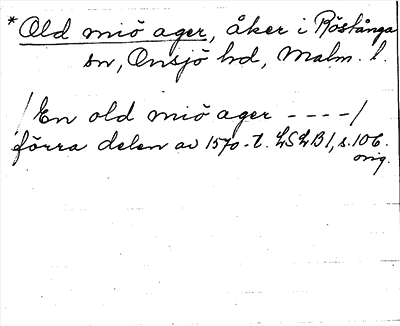 *Old miö ager, åker i Röstånga
sn, Onsjö hd, Malm. l.
/En old miö ager ----/
förra delen av 1570-t. LSLB1, s.106.
orig.